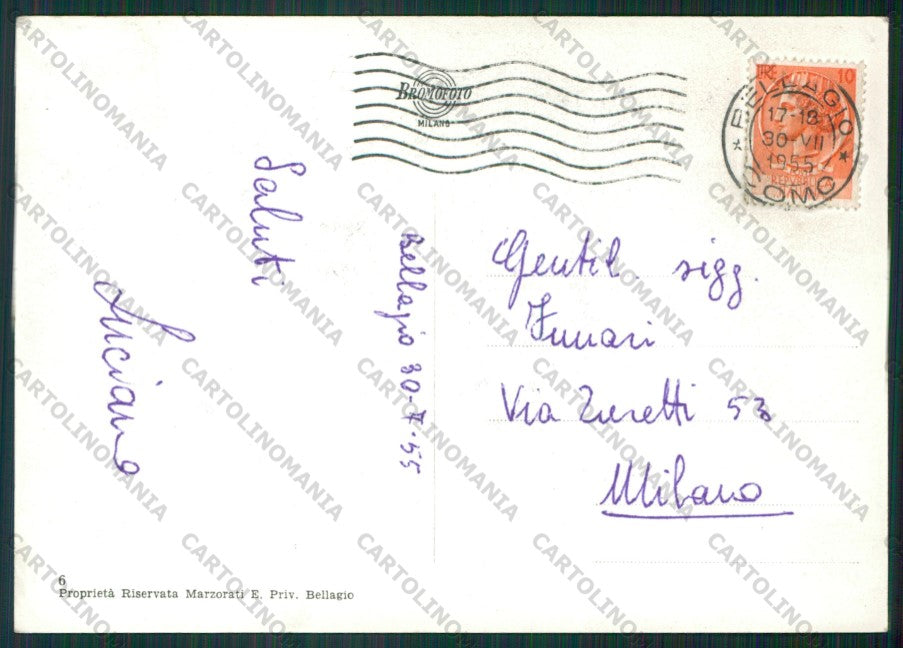 BROMOFOTO
MILANO
LIRE 10
BELLAGIO
17-18
30-VII
1955
COMO
Saluti
Luciano
Bellagio 30-7-55
Gentil. sigg.
Funari
Via Zuretti 53
Milano
6
Proprietà Riservata Marzorati E. Priv. Bellagio
CARTOLINOMANIA